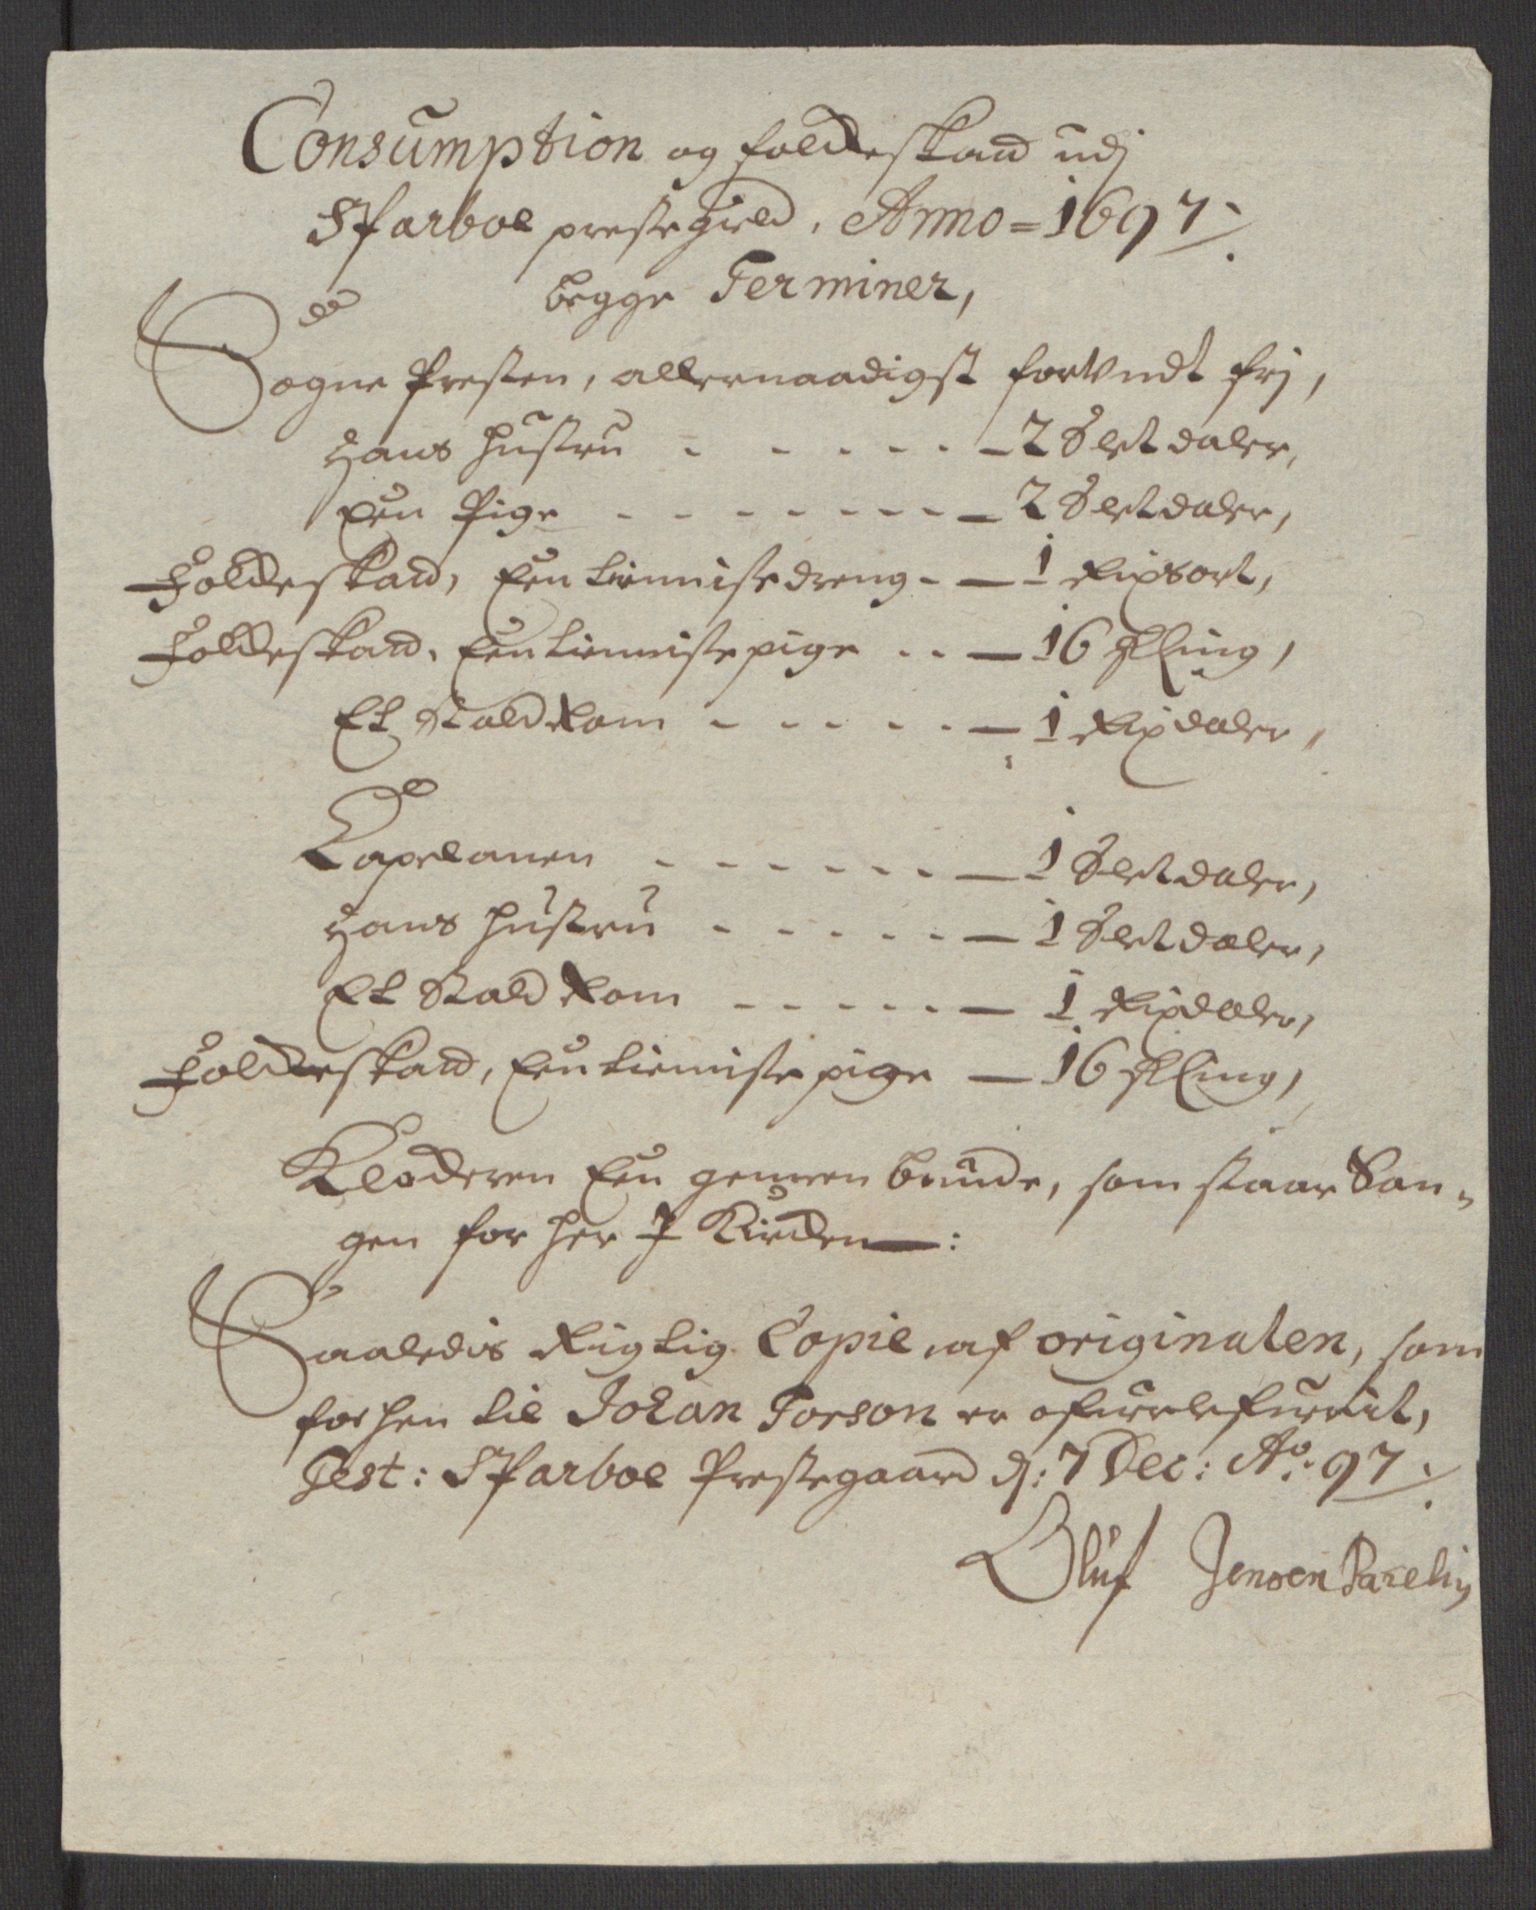 Consumption og folcheskatt udj
Sparboe prestegield. Anno = 1697 ⁄.
begge Terminer,
Sogne Presten, allernaadigst forundt frj,
Hans Hustru - - - - - - 2 Slet daler,
Een Pige - - - - - - - - 2 Slet daler,
Folcheskatt, Een tienniste dreng - - 1 Rixsort,
Folcheskatt, Een tienniste pige - - - 16 skling,
Et Stald Rom - - - - - - 1 Rixdaler,
Capelanen - - - - - - - 1 Slet daler,
Hans Hustru - - - - - - 1 Slet daler,
Et Stald Rom - - - - - - 1 Rixdaler,
Folcheskatt, Een tienniste pige — 16 skling,
Klocheren Een gemeen bunde, som staar San-
gen for her J Kircken —:
Saaledis Rigtig Copie, af originalen, som
forhen til Johan Torson er ofuerlefuerit,
Test: Sparboe Prestegaard d: 7 Dec: Ao: 97 ⁄.
Oluf Jensen Parelius